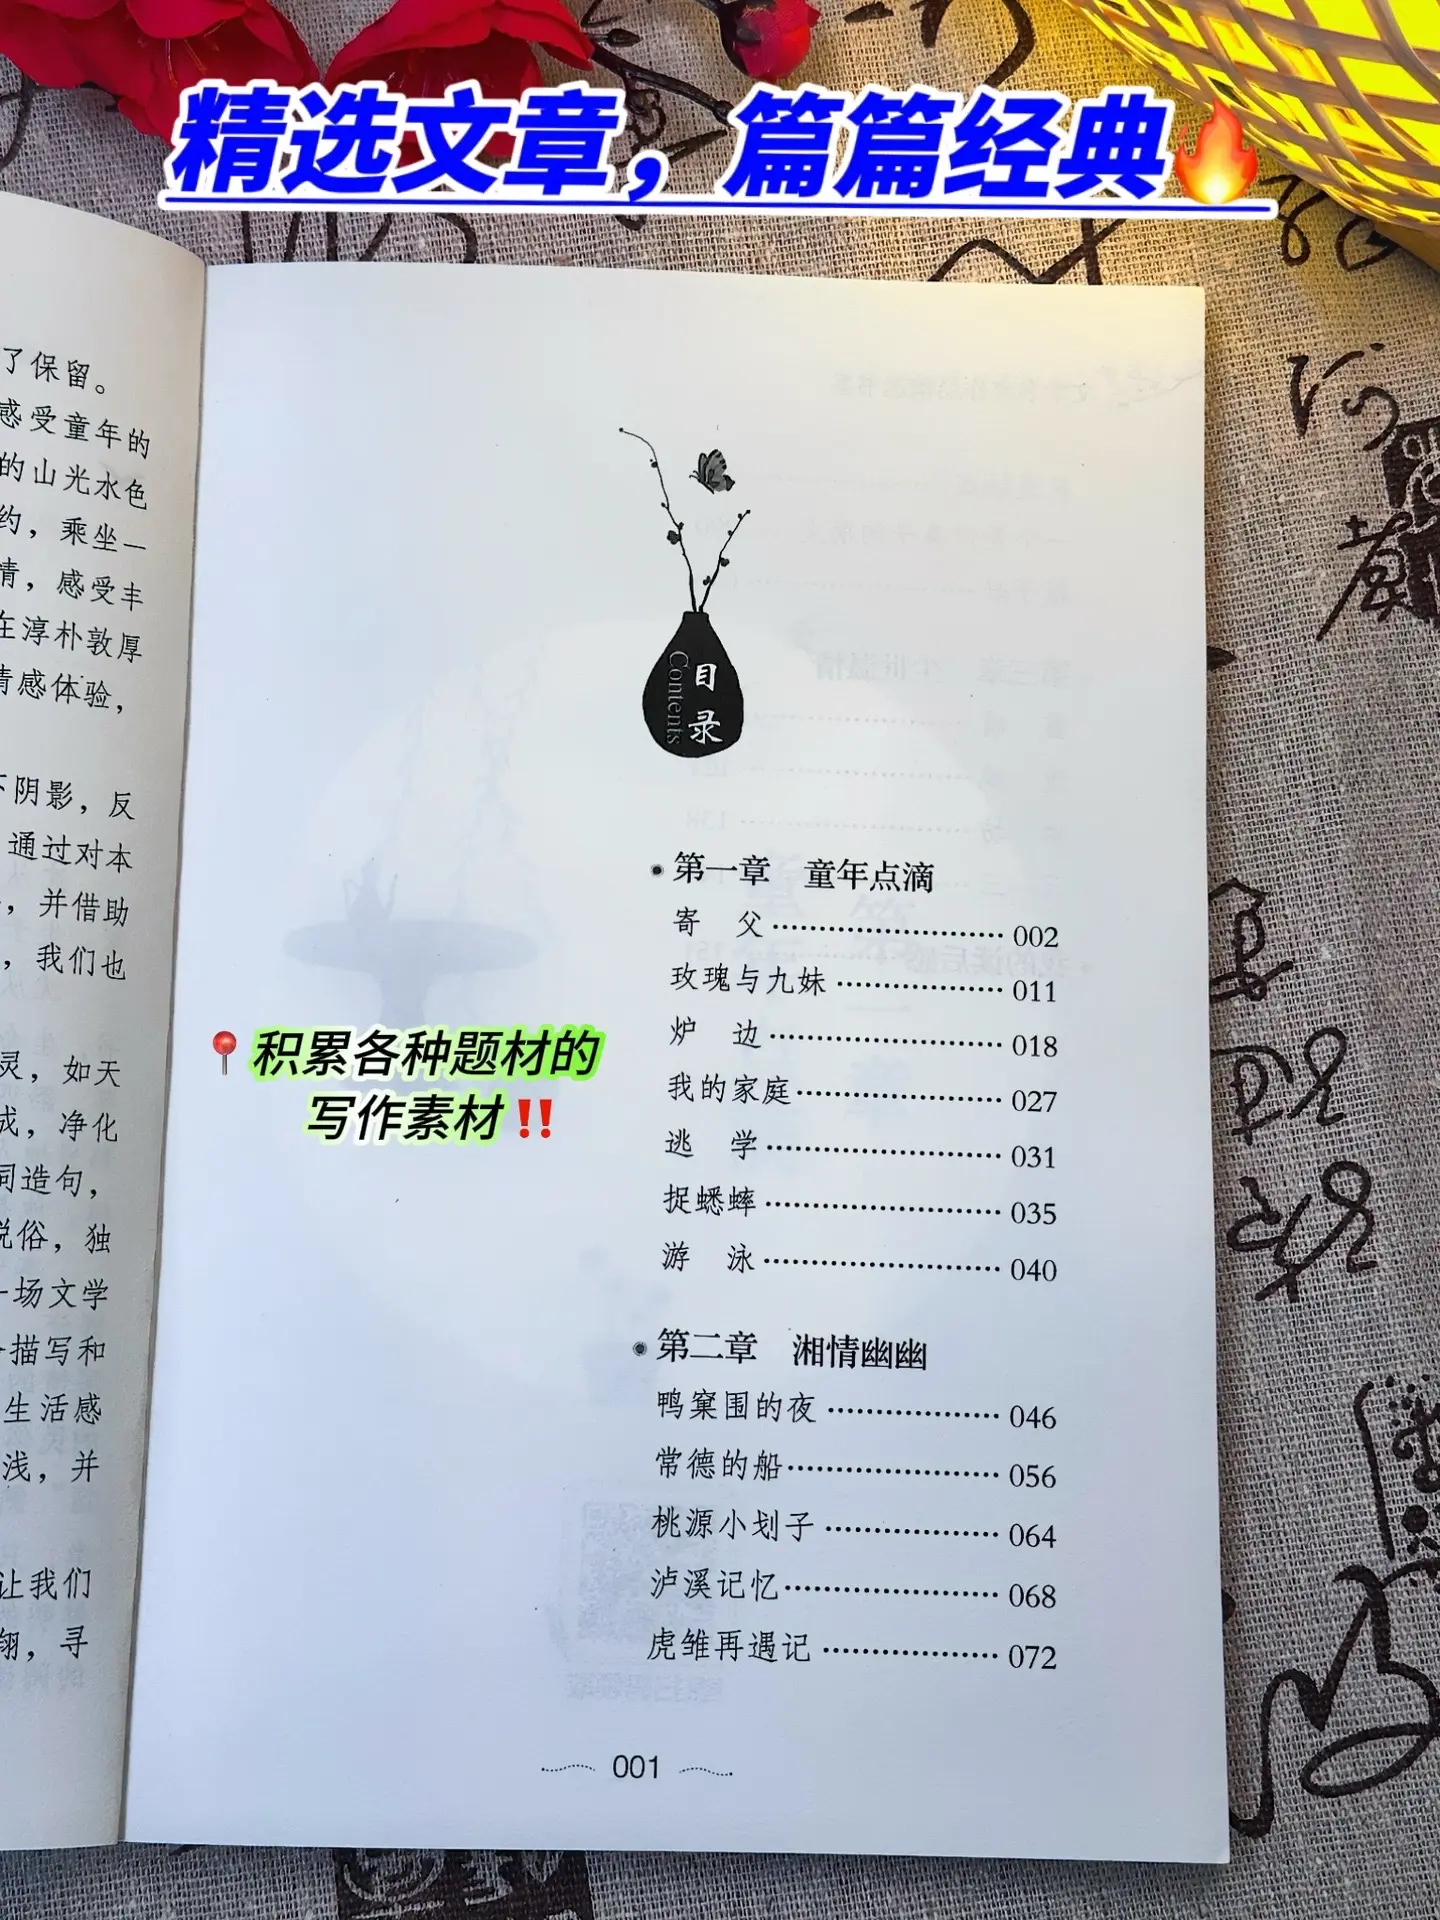 精选文章，篇篇经典🔥
了保留。
感受童年的
的山光水色
约，乘坐一
情，感受丰
在淳朴敦厚
情感体验，
下阴影，反
通过对本
，并借助
，我们也
灵，如天
成，净化
词造句，
脱俗，独
一场文学
描写和
生活感
浅，并
让我们
翔，寻
目录
Contents
第一章 童年点滴
寄 父 …………………… 002
玫瑰与九妹 …………………… 011
炉 边 …………………… 018
我的家庭 …………………… 027
逃 学 …………………… 031
捉蟋蟀 …………………… 035
游 泳 …………………… 040
📍积累各种题材的
写作素材‼️
第二章 湘情幽幽
鸭窠围的夜 …………………… 046
常德的船 …………………… 056
桃源小划子 …………………… 064
泸溪记忆 …………………… 068
虎雏再遇记 …………………… 072
001